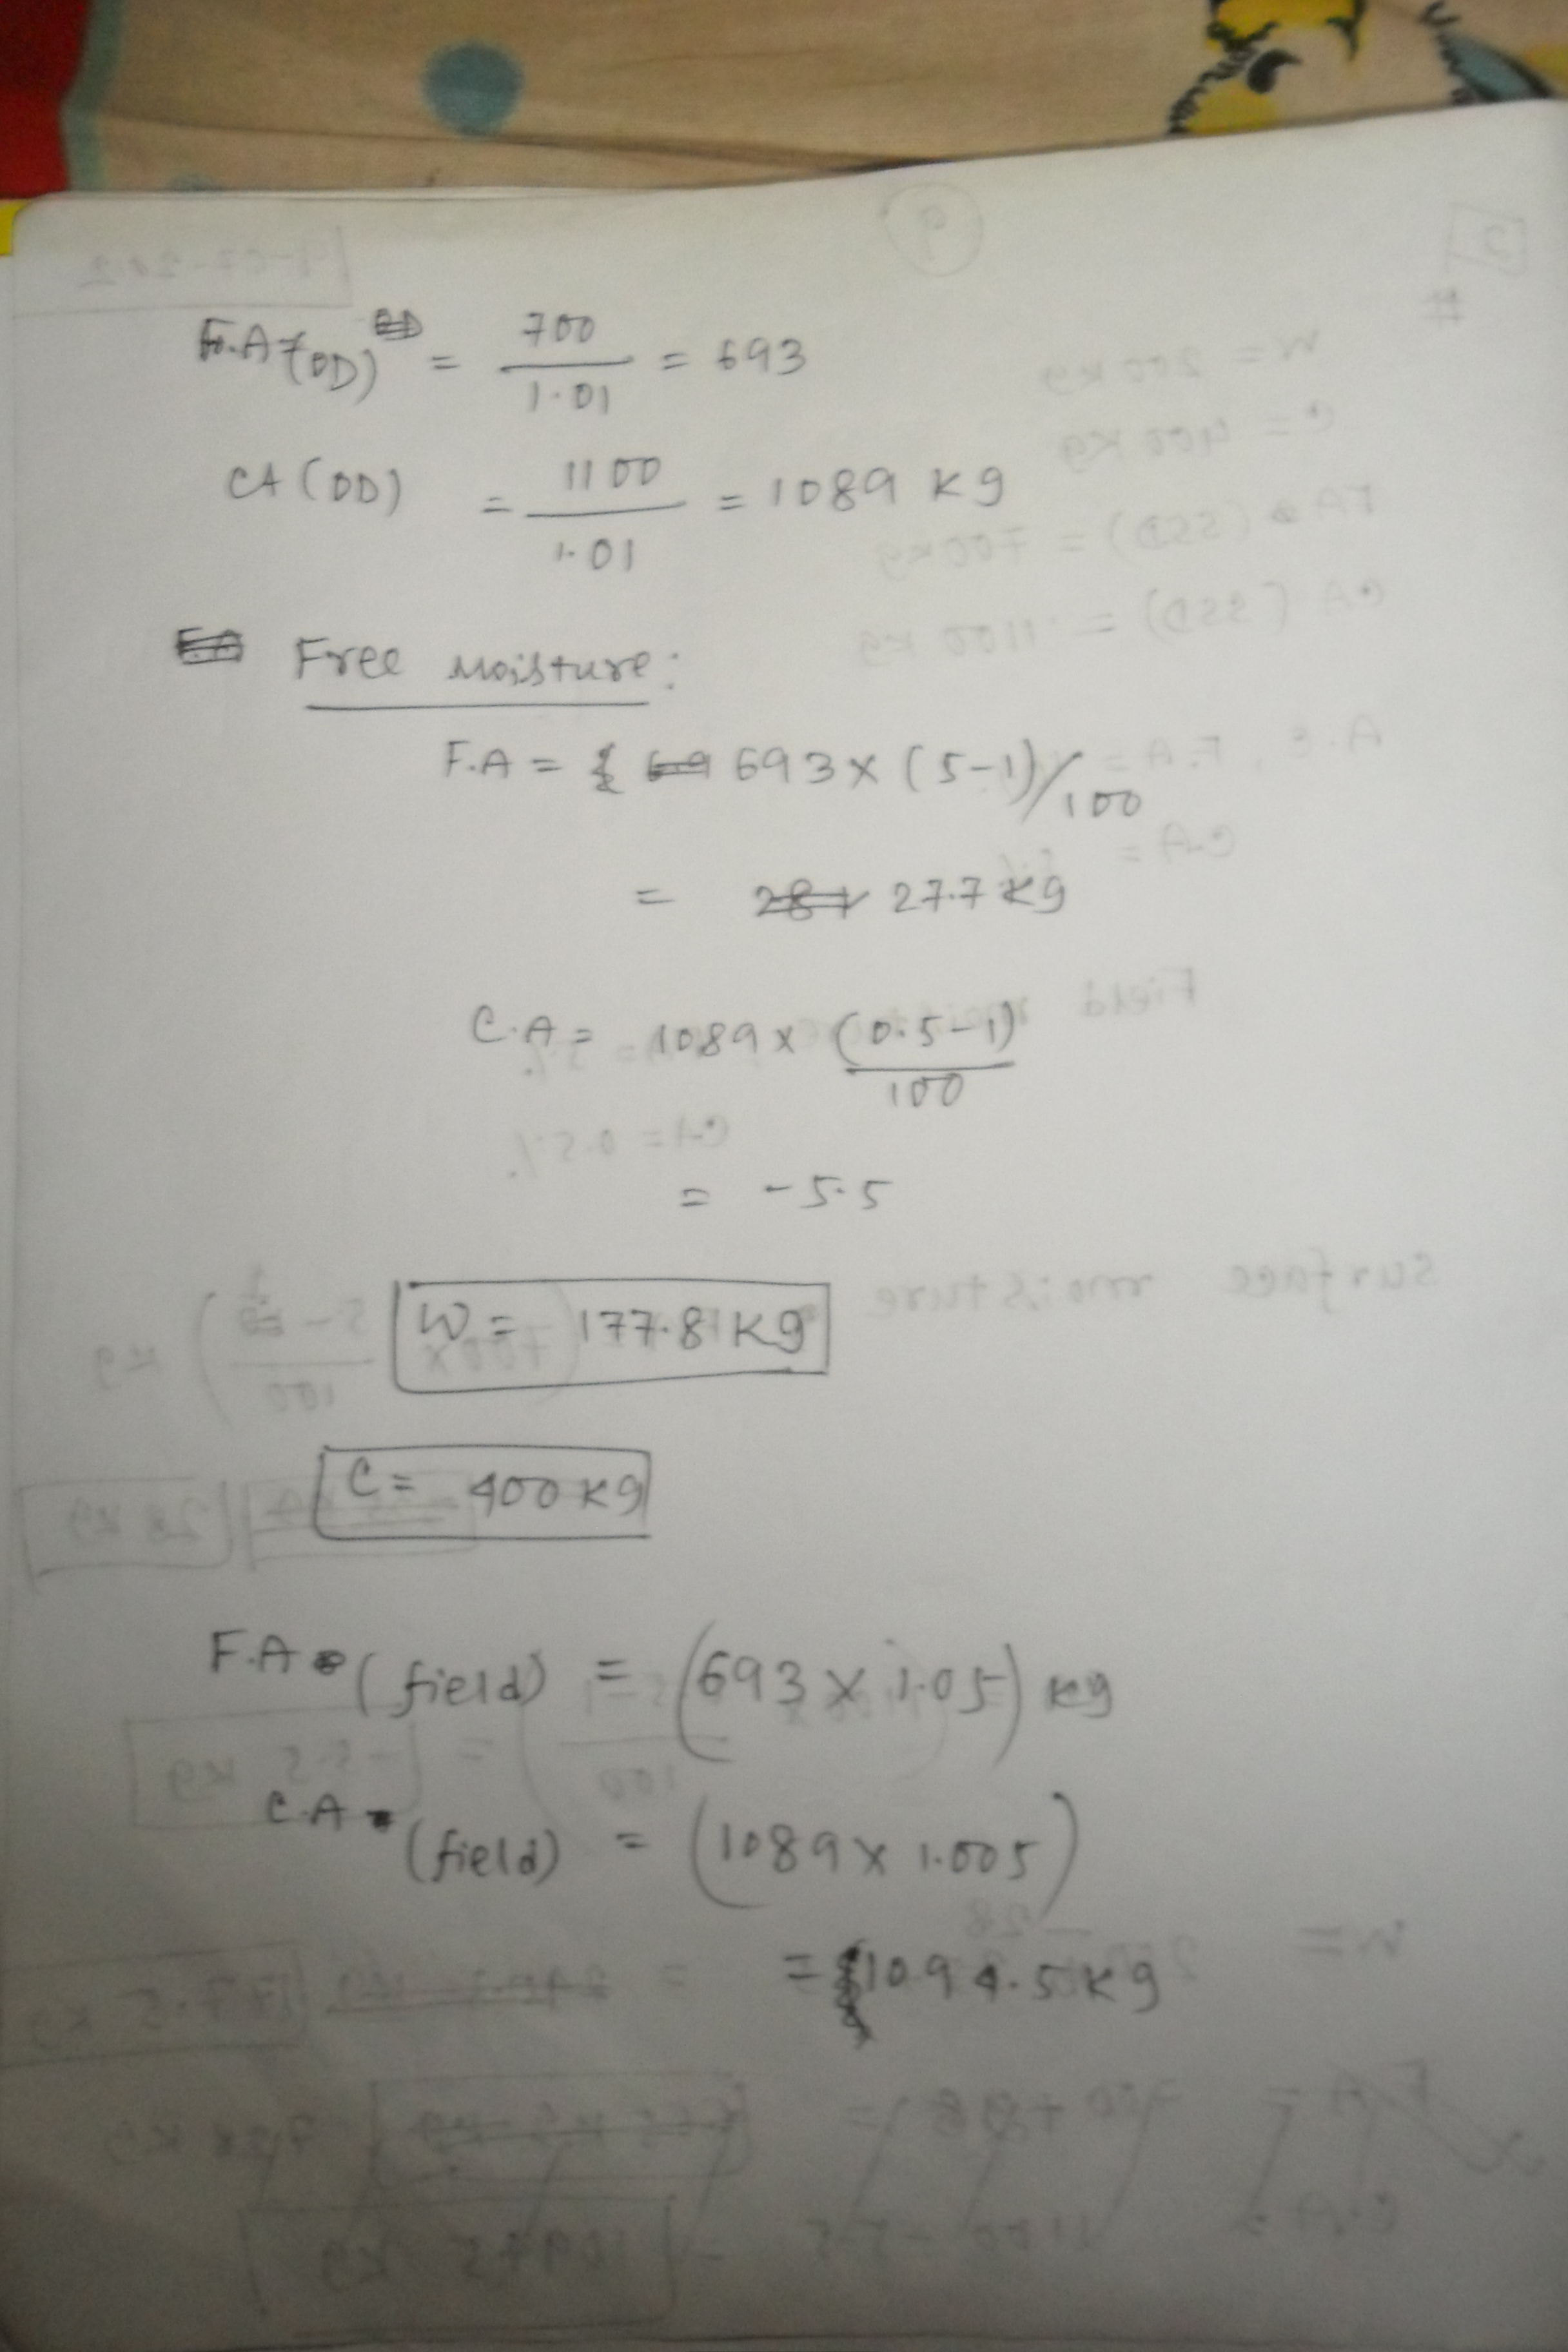 F.A (OD) = 700 / 1.01 = 693
CA (OD) = 1100 / 1.01 = 1089 kg
Free Moisture:
F.A = 693 x (5-1)/100
= 27.7 kg
C.A = 1089 x (0.5-1) / 100
= -5.5
W = 177.8 kg
C = 400 kg
F.A (field) = (693 x 1.05) kg
C.A (field) = (1089 x 1.005)
= 1094.5 kg